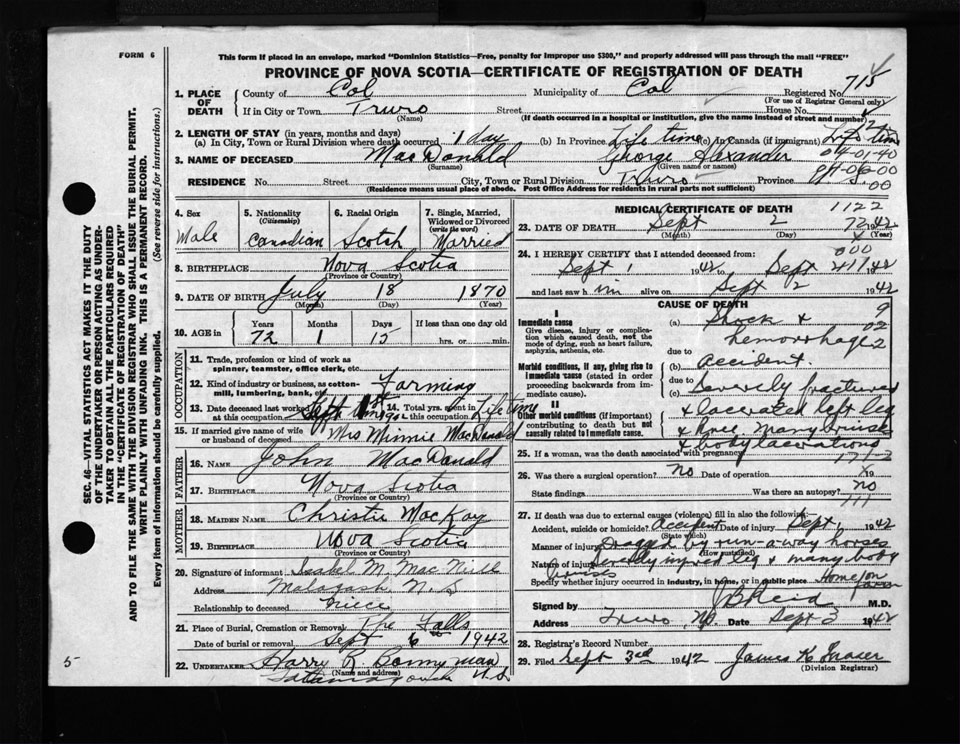 FORM 6
This form if placed in an envelope, marked "Dominion Statistics—Free, penalty for improper use $300," and properly addressed will pass through the mail "FREE"
PROVINCE OF NOVA SCOTIA—CERTIFICATE OF REGISTRATION OF DEATH
715
1. PLACE OF DEATH County of Col Municipality of Col Registered No.
(For use of Registrar General only)
If in City or Town Truro Street House No.
(Name) (If death occurred in a hospital or institution, give the name instead of street and number)
2. LENGTH OF STAY (in years, months and days)
(a) In City, Town or Rural Division where death occurred 1 day (b) In Province Life time (c) In Canada (if immigrant) Life time
3. NAME OF DECEASED MacDonald George Alexander
(Surname) (Given name or names)
RESIDENCE No. Street City, Town or Rural Division Truro Province
(Residence means usual place of abode. Post Office Address for residents in rural parts not sufficient)
4. Sex Male
5. Nationality (Citizenship) Canadian
6. Racial Origin Scotch
7. Single, Married, Widowed or Divorced (write the word) Married
8. BIRTHPLACE Nova Scotia
(Province or Country)
9. DATE OF BIRTH July 18 1870
(Month) (Day) (Year)
10. AGE in Years Months Days If less than one day old
72 1 15 hrs. or min.
OCCUPATION
11. Trade, profession or kind of work as spinner, teamster, office clerk, etc.
12. Kind of industry or business, as cotton-mill, lumbering, bank, etc. Farming
13. Date deceased last worked at this occupation Sept 1st 1942 14. Total yrs. spent in this occupation Life time
15. If married give name of wife or husband of deceased Mrs Minnie MacDonald
FATHER
16. NAME John MacDonald
17. BIRTHPLACE Nova Scotia
(Province or Country)
MOTHER
18. MAIDEN NAME Christie MacKay
19. BIRTHPLACE Nova Scotia
(Province or Country)
20. Signature of informant Isabel M. MacNeill
Address Malagash N.S
Relationship to deceased niece
21. Place of Burial, Cremation or Removal The Falls
Date of burial or removal Sept 6th 1942
22. UNDERTAKER Harry R. Bonnyman
(Name and address)
Tatamagouche N.S
MEDICAL CERTIFICATE OF DEATH 1122
23. DATE OF DEATH Sept 2 1942
(Month) (Day) (Year)
24. I HEREBY CERTIFY that I attended deceased from:
Sept 1 1942 to Sept 2 1942
and last saw him alive on Sept 2 1942
CAUSE OF DEATH
I
Immediate cause
Give disease, injury or complication which caused death, not the mode of dying, such as heart failure, asphyxia, asthenia, etc.
(a) Shock & hemorrhage
due to
Morbid conditions, if any, giving rise to immediate cause (stated in order proceeding backwards from immediate cause).
(b) accident
due to
(c) Severely fractured
II
Other morbid conditions (if important) contributing to death but not causally related to immediate cause.
& lacerated left leg
& knee many bruises
& body lacerations
25. If a woman, was the death associated with pregnancy
26. Was there a surgical operation? no Date of operation
State findings Was there an autopsy? no
27. If death was due to external causes (violence) fill in also the following:
Accident, suicide or homicide? Accident Date of injury Sept 1 1942
(State which)
Manner of injury Dragged by run-a-way horses
(How sustained)
Nature of injury Severely injured leg & many body bruises
Specify whether injury occurred in industry, in home, or in public place Home on farm
Signed by JB Reid M.D.
Address Truro, NS Date Sept 3 1942
28. Registrar's Record Number
29. Filed Sept 3rd 1942 James K Fraser
(Division Registrar)
SEC. 46—VITAL STATISTICS ACT MAKES IT THE DUTY OF THE UNDERTAKER OR PERSON ACTING AS UNDERTAKER TO OBTAIN ALL THE PARTICULARS REQUIRED IN THE "CERTIFICATE OF REGISTRATION OF DEATH" AND TO FILE THE SAME WITH THE DIVISION REGISTRAR WHO SHALL ISSUE THE BURIAL PERMIT.
WRITE PLAINLY WITH UNFADING INK. THIS IS A PERMANENT RECORD.
Every item of information should be carefully supplied. (See reverse side for instructions.)
5-